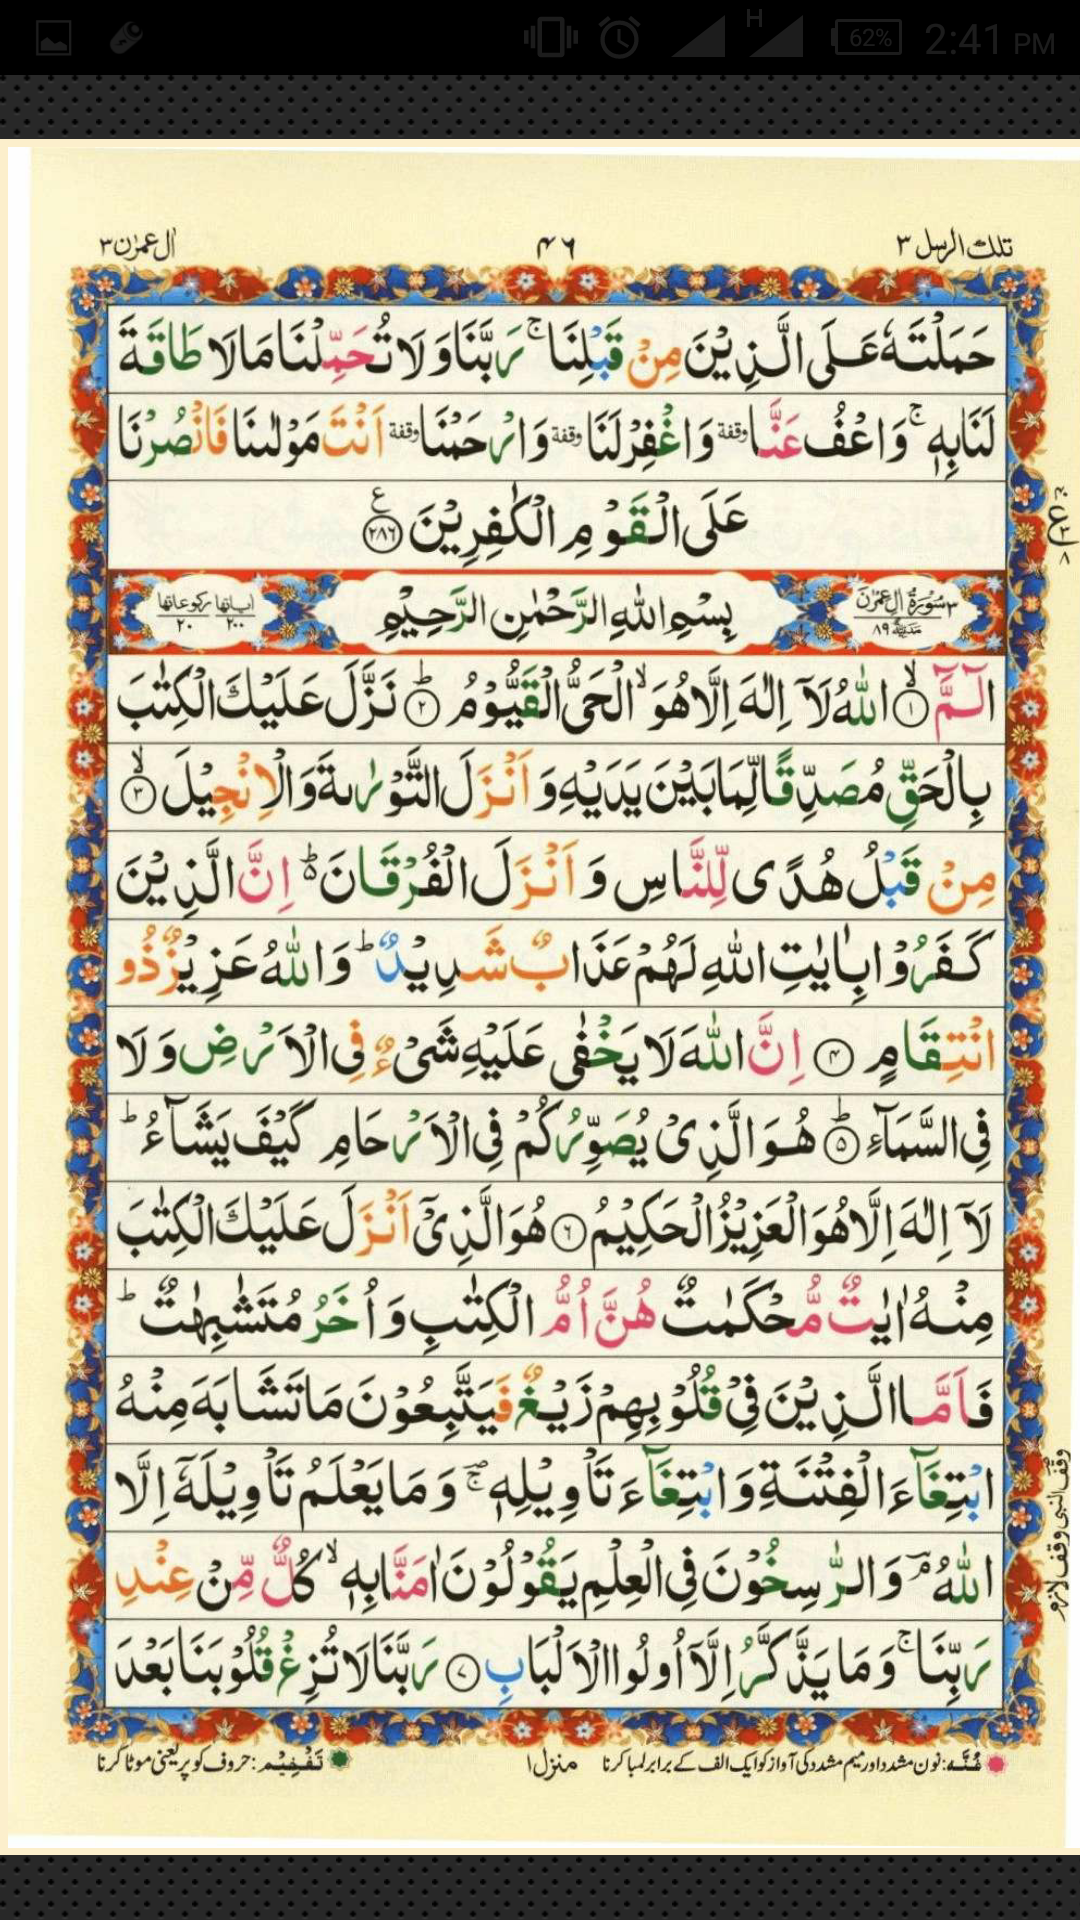 62% 2:41 PM
H
تلك الرسل ٣
٤٦
اٰل عمرٰن ٣
حَمَلْتَهٗ عَلَى الَّذِيْنَ مِنْ قَبْلِنَا ۚ رَبَّنَا وَلَا تُحَمِّلْنَا مَا لَا طَاقَةَ
لَنَا بِهٖ ۚ وَاعْفُ عَنَّا وقفة وَاغْفِرْ لَنَا وقفة وَارْحَمْنَا وقفة اَنْتَ مَوْلٰىنَا فَانْصُرْنَا
عَلَى الْقَوْمِ الْكٰفِرِيْنَ ﴿٢٨٦﴾ ع
٣ سُوْرَةُ اٰلِ عِمْرٰنَ مَدَنِيَّةٌ ٨٩
بِسْمِ اللهِ الرَّحْمٰنِ الرَّحِيْمِ
اٰیاتها ٢٠٠ ركوعاتها ٢٠
الٓـمّٓ ﴿١﴾ۙ اللهُ لَاۤ اِلٰهَ اِلَّا هُوَ ۙ الْحَىُّ الْقَيُّوْمُ ﴿٢﴾ؕ نَزَّلَ عَلَيْكَ الْكِتٰبَ
بِالْحَقِّ مُصَدِّقًا لِّمَا بَيْنَ يَدَيْهِ وَ اَنْزَلَ التَّوْرٰىةَ وَالْاِنْجِيْلَ ﴿٣﴾ۙ
مِنْ قَبْلُ هُدًى لِّلنَّاسِ وَ اَنْزَلَ الْفُرْقَانَ ؕ اِنَّ الَّذِيْنَ
كَفَرُوْا بِاٰيٰتِ اللهِ لَهُمْ عَذَابٌ شَدِيْدٌ ؕ وَاللهُ عَزِيْزٌ ذُو
انْتِقَامٍ ﴿٤﴾ اِنَّ اللهَ لَا يَخْفٰى عَلَيْهِ شَىْءٌ فِى الْاَرْضِ وَلَا
فِى السَّمَآءِ ﴿٥﴾ؕ هُوَ الَّذِىْ يُصَوِّرُكُمْ فِى الْاَرْحَامِ كَيْفَ يَشَآءُ ؕ
لَاۤ اِلٰهَ اِلَّا هُوَ الْعَزِيْزُ الْحَكِيْمُ ﴿٦﴾ هُوَ الَّذِىْۤ اَنْزَلَ عَلَيْكَ الْكِتٰبَ
مِنْهُ اٰيٰتٌ مُّحْكَمٰتٌ هُنَّ اُمُّ الْكِتٰبِ وَاُخَرُ مُتَشٰبِهٰتٌ ؕ
فَاَمَّا الَّذِيْنَ فِىْ قُلُوْبِهِمْ زَيْغٌ فَيَتَّبِعُوْنَ مَا تَشَابَهَ مِنْهُ
ابْتِغَآءَ الْفِتْنَةِ وَابْتِغَآءَ تَاْوِيْلِهٖ ۚ وَمَا يَعْلَمُ تَاْوِيْلَهٗۤ اِلَّا
اللهُ ۘ وَالرّٰسِخُوْنَ فِى الْعِلْمِ يَقُوْلُوْنَ اٰمَنَّا بِهٖ ۙ كُلٌّ مِّنْ عِنْدِ
رَبِّنَا ۚ وَمَا يَذَّكَّرُ اِلَّاۤ اُولُوا الْاَلْبَابِ ﴿٧﴾ رَبَّنَا لَا تُزِغْ قُلُوْبَنَا بَعْدَ
وقف النبی وقف لازم
غُنَّه: نون مشدد اور میم مشدد کی آواز کو ایک الف کے برابر لمبا کرنا
منزل ١
تَفْخِيْم: حروف کو پر یعنی موٹا کرنا